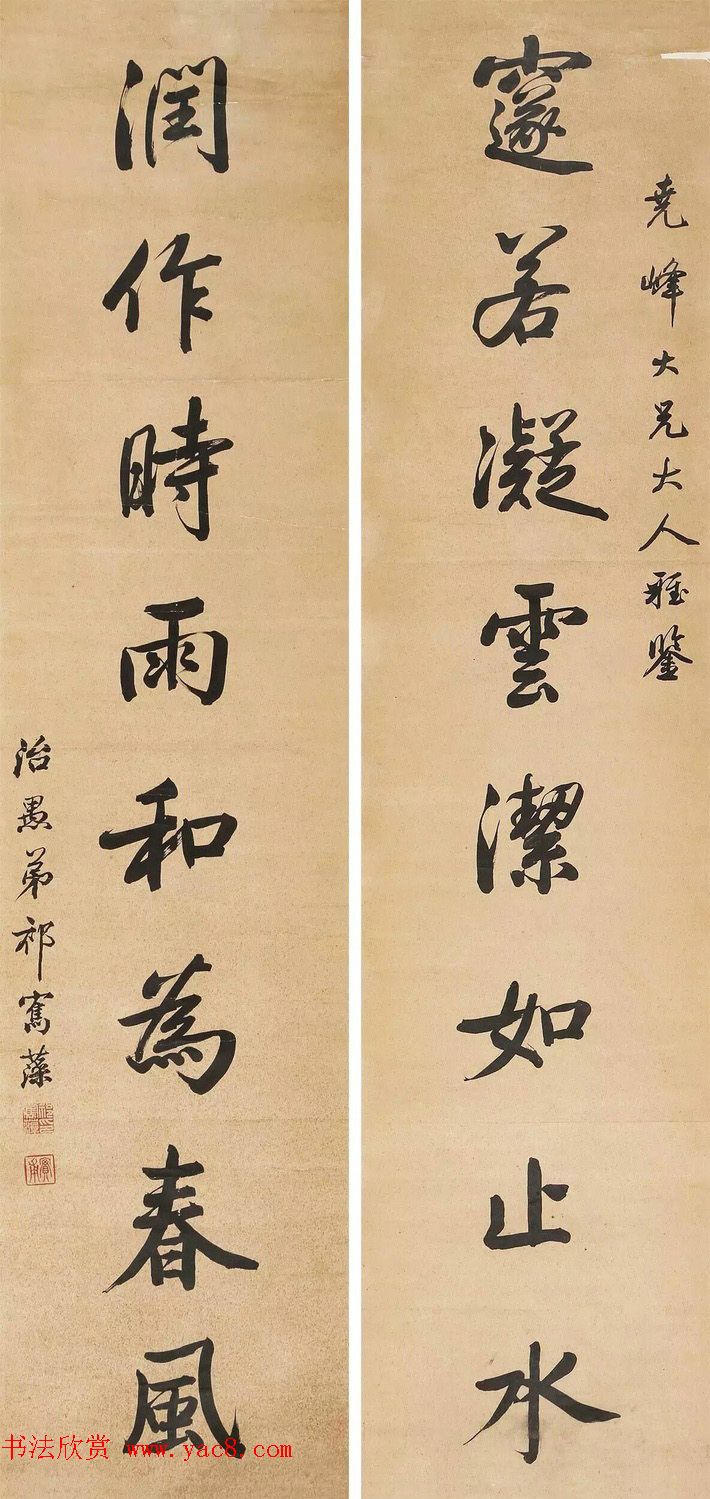 堯峰大兄大人雅鑒
邃若凝雲潔如止水
潤作時雨和為春風
治愚弟祁寯藻
书法欣赏 www.yac8.com